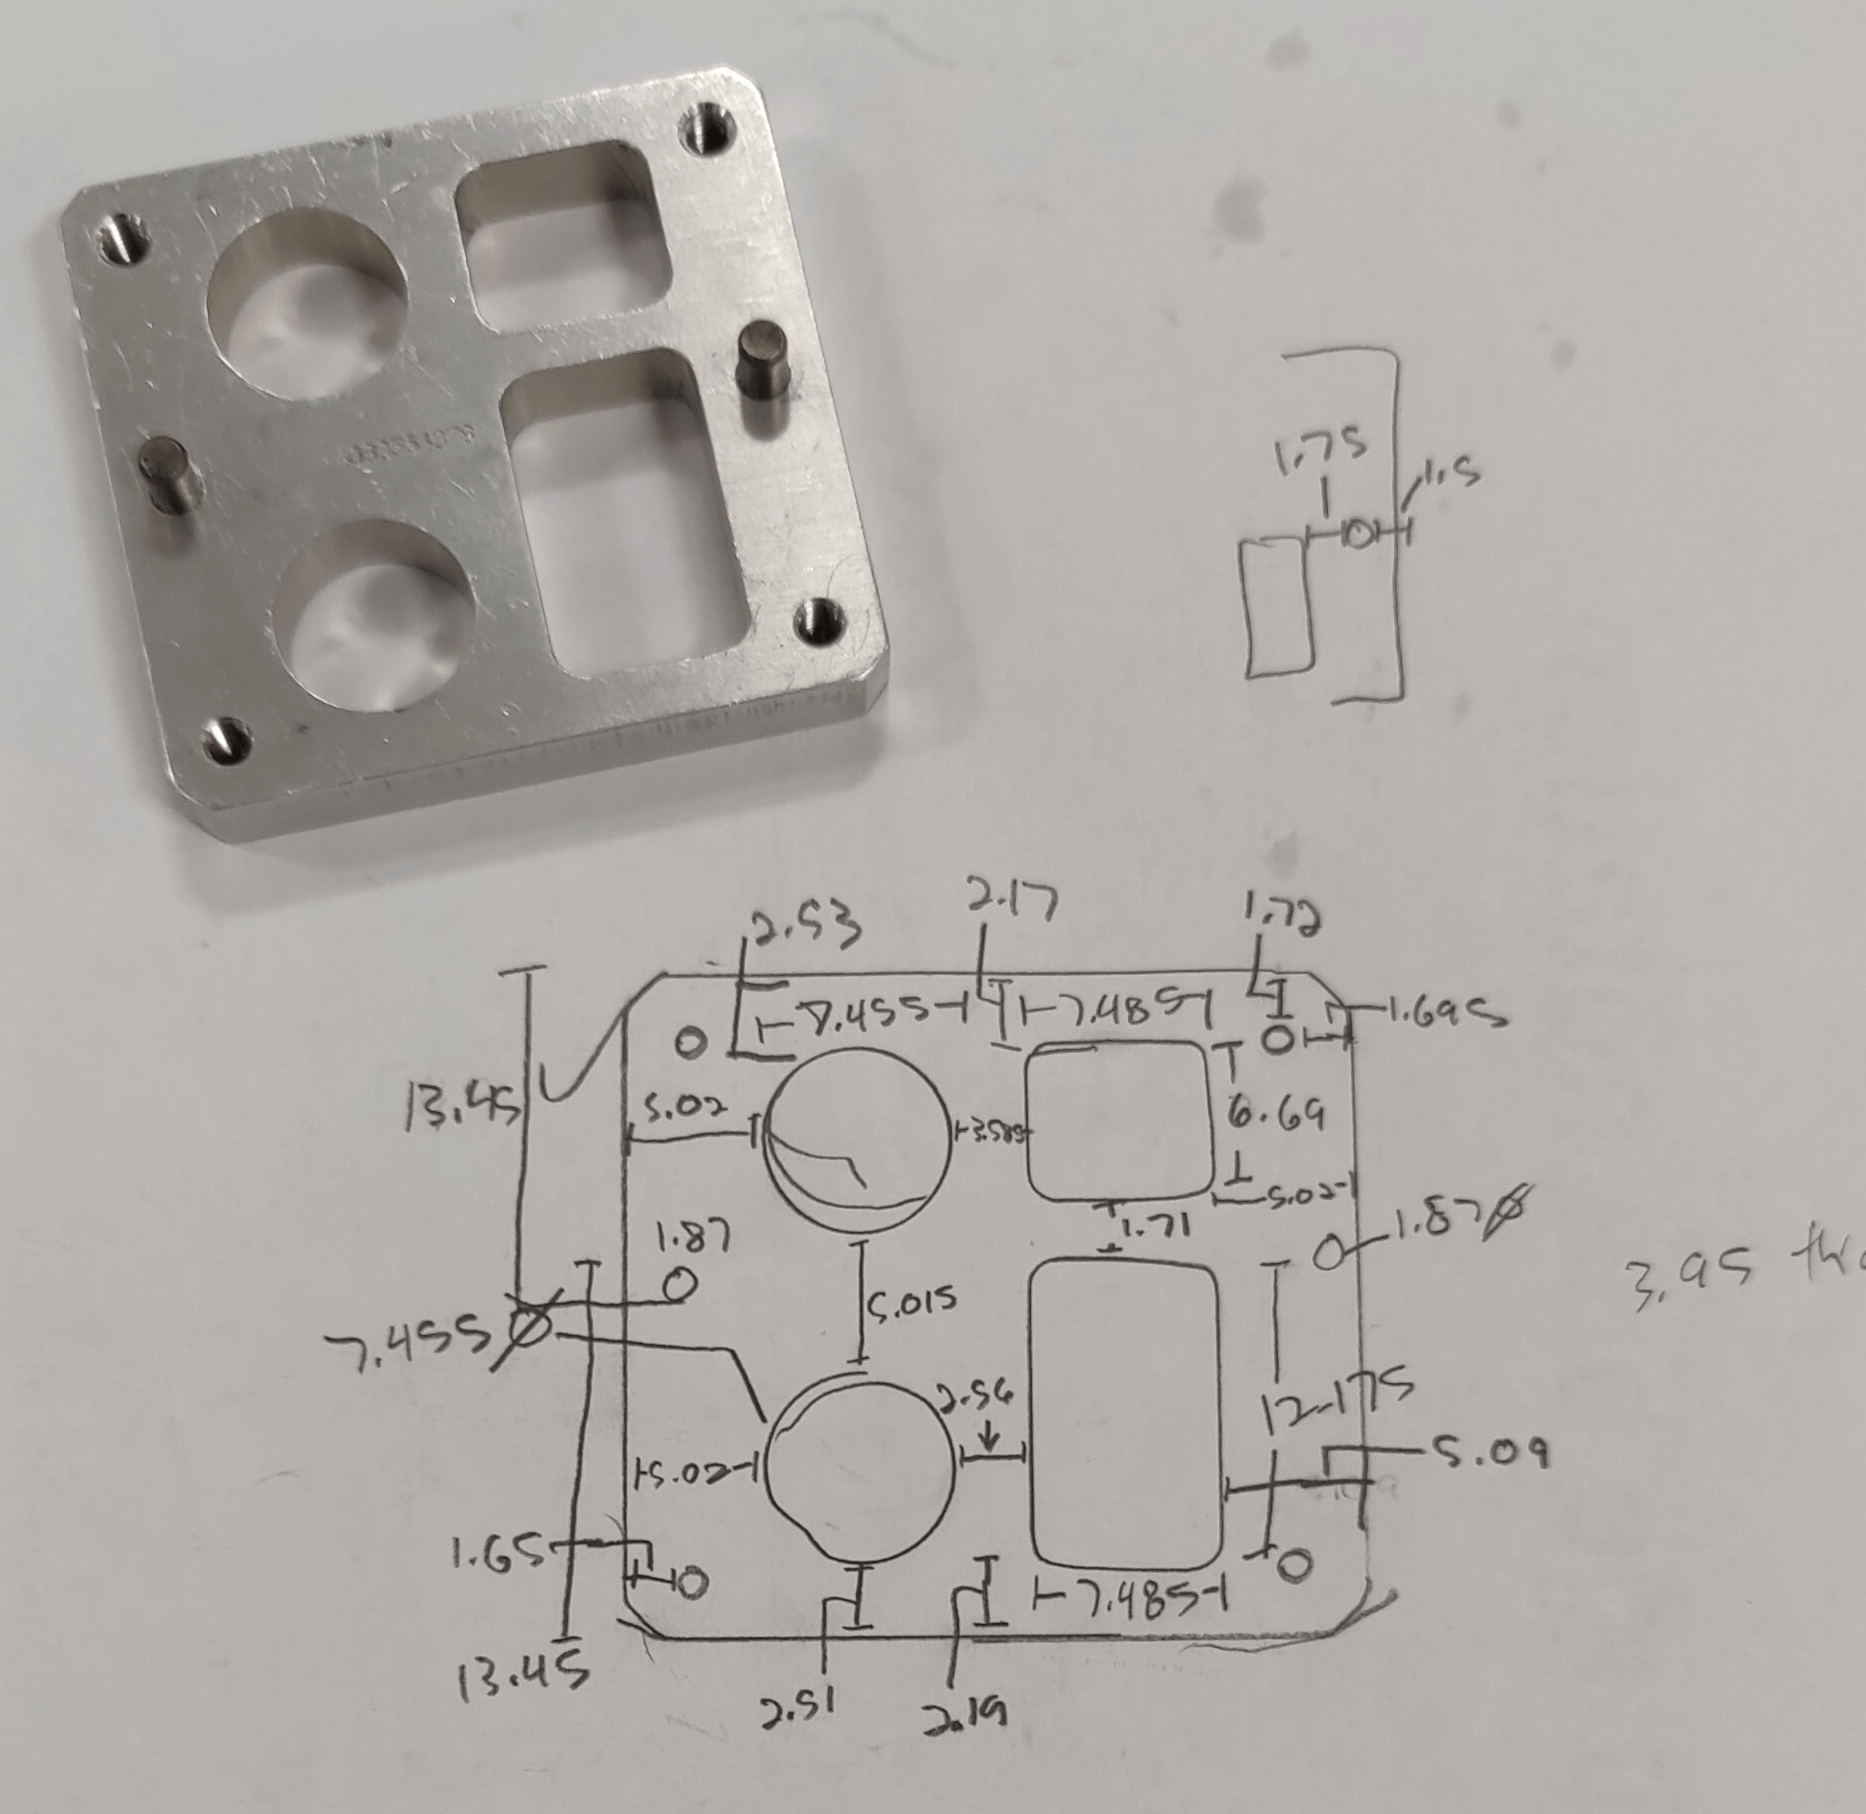 1.75
1.5
2.53
2.17
1.72
7.455
7.485
1.695
13.45
5.02
3.585
6.69
5.02
1.87
1.71
1.87Ø
3.95
7.455 Ø
5.015
2.56
12.175
5.02
5.09
1.65
7.485
13.45
2.51
2.19